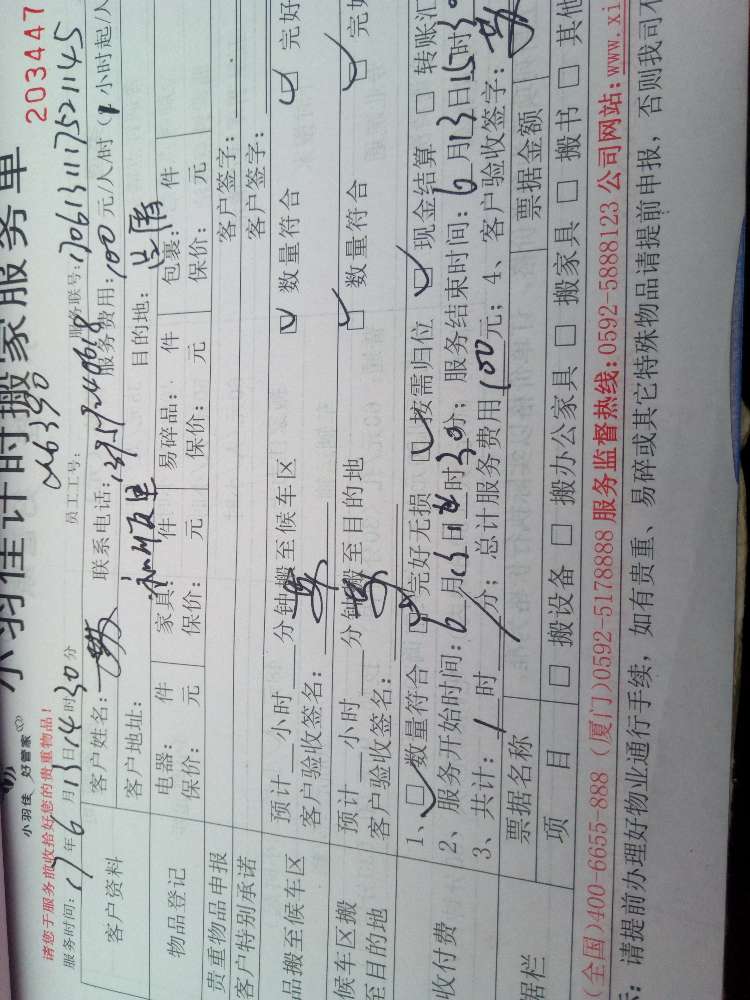 小羽佳计时搬家服务单
203447
小羽佳 好管家
请您于服务前收拾好您的贵重物品!
员工工号:
服务时间:17年6月13日14时30分
服务联号:1706131117521145
客户资料
客户姓名:
联系电话:
服务费用:100元/人/时(1小时起/人
客户地址:
目的地:
物品登记
电器: 件 家具: 件 易碎品: 件 包裹: 件
保价: 元 保价: 元 保价: 元 保价: 元
贵重物品申报
客户签字:
客户特别承诺
客户签字:
品搬至候车区
预计 小时 分钟搬至候车区 □ 数量符合 □ 完好
客户验收签名:
候车区搬
至目的地
预计 小时 分钟搬至目的地 □ 数量符合 □ 完好
客户验收签名:
收付费
1、□ 数量符合 □ 完好无损 □ 按需归位 □ 现金结算 □ 转账汇
2、服务开始时间:6月13日14时30分;服务结束时间:6月13日15时30
3、共计:1时 分;总计服务费用100元;4、客户验收签字:
据栏
票据名称
票据金额
项 目
□ 搬设备 □ 搬办公家具 □ 搬家具 □ 搬书 □ 其他
(全国)400-6655-888 (厦门)0592-5178888 服务监督热线:0592-5888123 公司网站:www.xi
:请提前办理好物业通行手续,如有贵重、易碎或其它特殊物品请提前申报,否则我司不